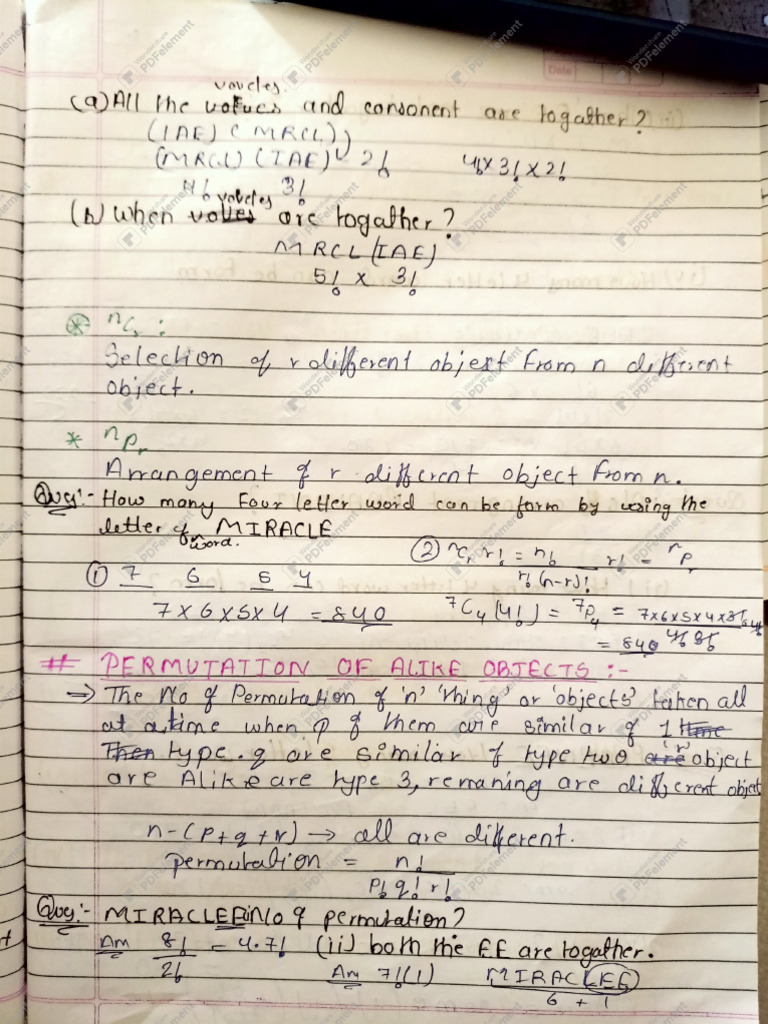 vovcles.
(a) All the volues and consonent are togather?
(IAE) (MRCL)
(MRCL) (IAE) 2! 4! x 3! x 2!
4! 3!
vovcles
(b) When volles are togather?
MRCL (IAE)
5! x 3!
nCr :
Selection of r different object from n different
object.
* nPr
Arrangement of r different object from n.
Ques:- How many Four letter word can be form by using the
letter of MIRACLE
word.
① 7 6 5 4
7 x 6 x 5 x 4 = 840
② nCr r! = n! / r! (n-r)! r! = nPr
7C4 (4!) = 7P4 = 7x6x5x4x3!
= 840
# PERMUTATION OF ALIKE OBJECTS :-
⇒ The No of Permutation of 'n' 'thing' or 'objects' taken all
at a time when p of them are similar of 1 time
Then type. q are similar of type two are 'r' object
are Alike are type 3, remaning are different object
n-(p+q+r) → all are different.
permutation = n!
p! q! r!
Ques:- MIRACLEE No of permutation?
Ans 8! = 4.7! (ii) both the EE are togather.
2!
Ans 7! (1) MIRACLEE
6 + 1
Wondershare
PDFelement
Date